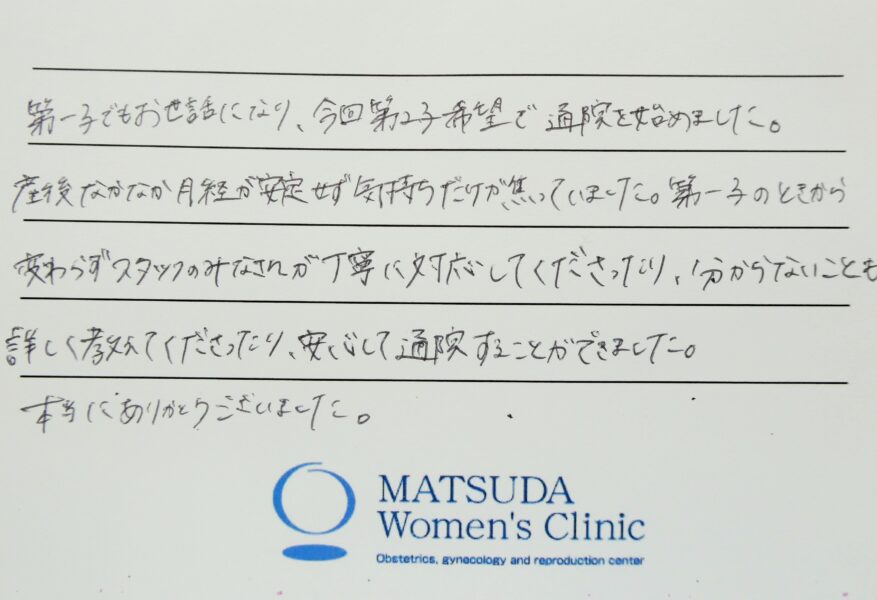 第一子でもお世話になり、今回第2子希望で通院を始めました。
産後なかなか月経が安定せず気持ちだけが焦っていました。第一子のときから
変わらずスタッフのみなさんが丁寧に対応してくださったり、分からないことも
詳しく教えてくださったり、安心して通院することができました。
本当にありがとうございました。
MATSUDA
Women's Clinic
Obstetrics, gynecology and reproduction center